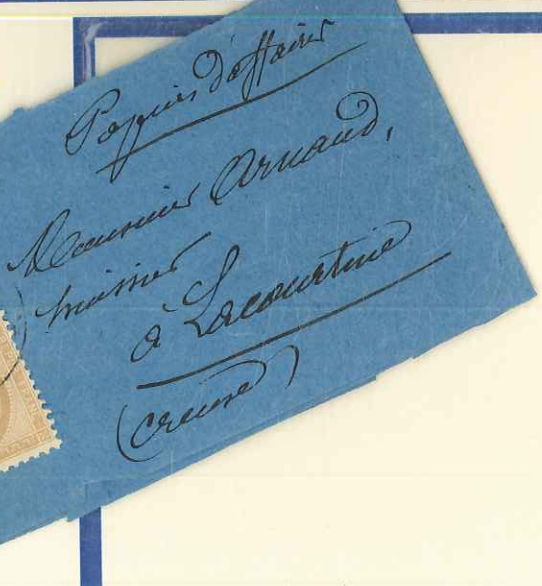 Papiers d'affaires
Monsieur Arnaud,
huissier
à Lacourtine
(Creuse)